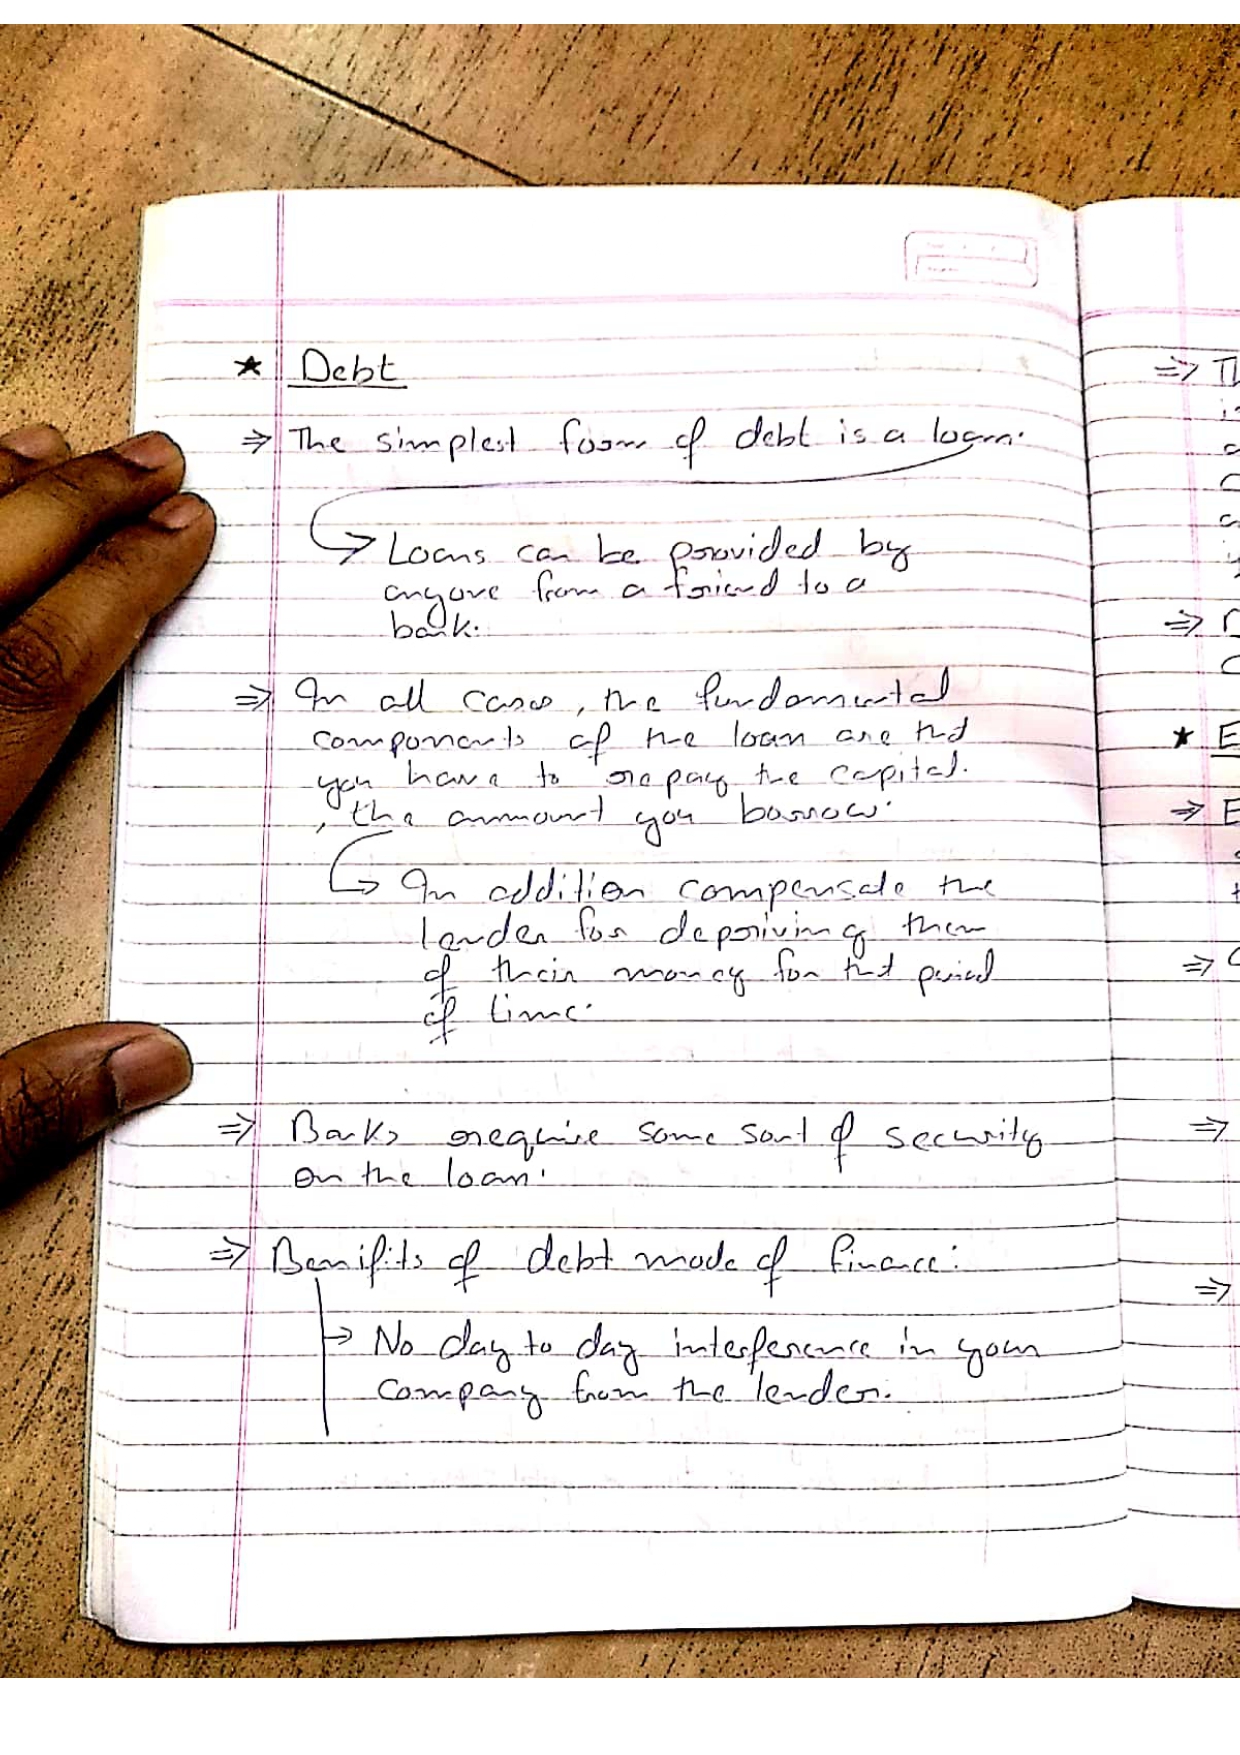 ★ Debt
⇒ The simplest form of debt is a loan.
↳ Loans can be provided by
anyone from a friend to a
bank.
⇒ In all cases, the fundamental
components of the loan are that
you have to repay the capital.
, the ammount you borrow.
↳ In addition compensate the
lender for depriving them
of their money for that period
of time.
⇒ Banks require some sort of security
on the loan.
⇒ Benifits of debt mode of finance:
→ No day to day interference in your
company from the lender.
⇒
⇒
★ E
⇒ E
⇒
⇒
⇒